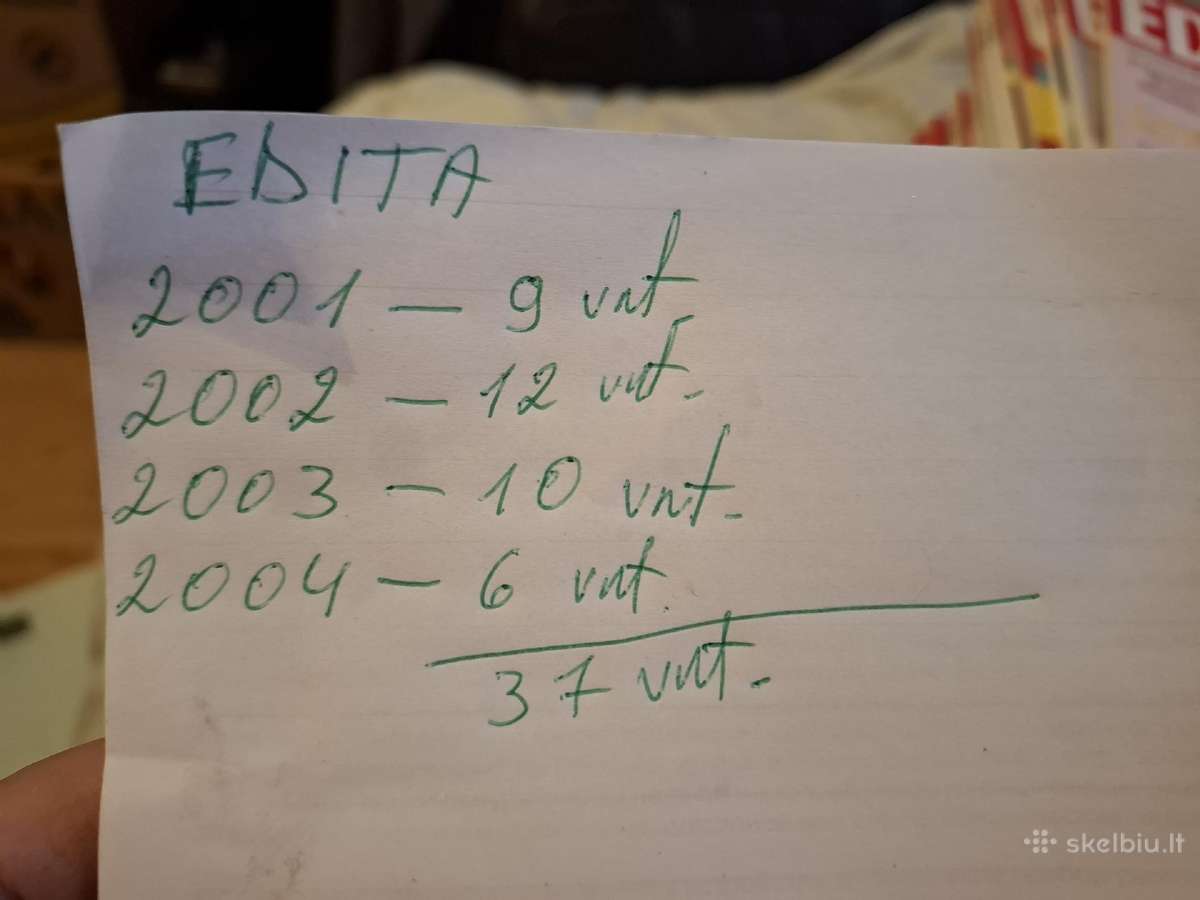 ED
EDITA
2001 — 9 vnt
2002 — 12 vnt.
2003 — 10 vnt.
2004 — 6 vnt.
37 vnt.
skelbiu.lt